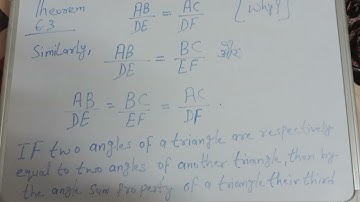 Theorem AB/DE = AC/DF [Why?]
6.3
Similarly, AB/DE = BC/EF और
AB/DE = BC/EF = AC/DF .
IF two angles of a triangle are respectively
equal to two angles of another triangle, then by
the angle sum property of a triangle their third